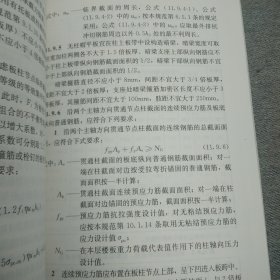 式中：um——临界截面的周长，公式（11.9.4-1）、公式
（11.9.4-2）中的um，按本规范第6.5.1条的规定
采用；公式（11.9.4-3）中的um，
冲切锥周边以外0.5h0处的最不利周长。
11.9.5 无柱帽平板宜在柱上板带中设构造暗梁，暗梁宽度可取
柱宽加柱两侧各不大于1.5倍板厚。暗梁支座上部纵向钢筋应不小
于柱上板带纵向钢筋截面面积的1/2，暗梁下部纵向钢筋不宜少
于上部纵向钢筋截面面积的1/2。
暗梁箍筋直径不应小于8mm，间距不宜大于3/4倍板厚，
肢距不宜大于2倍板厚；支座处暗梁箍筋加密区长度不应小于3
倍板厚，其箍筋间距不宜大于100mm，肢距不宜大于250mm。
1 沿两个主轴方向贯通节点柱截面的连续预应力筋及板底
纵向普通钢筋，应符合下列要求：
1 沿两个主轴方向贯通节点柱截面的连续钢筋的总截面面
积，应符合下式要求：
fpyAp+fyAs≥NG （11.9.6）
式中：As——贯通柱截面的板底纵向普通钢筋截面面积；对一
端在柱截面对边按受拉弯折锚固的普通钢筋，截
面面积按一半计算；
Ap——贯通柱截面连续预应力筋截面面积；对一端在柱
截面对边锚固的预应力筋，截面面积按一半计算；
fpy——预应力筋抗拉强度设计值，对无粘结预应力筋，
应按本规范第10.1.14条取用无粘结预应力筋的
应力设计值σpu；
NG——在本层楼板重力荷载代表值作用下的柱轴向压力
设计值。
2 连续预应力筋应布置在板柱节点上部，呈下凹进入板跨中